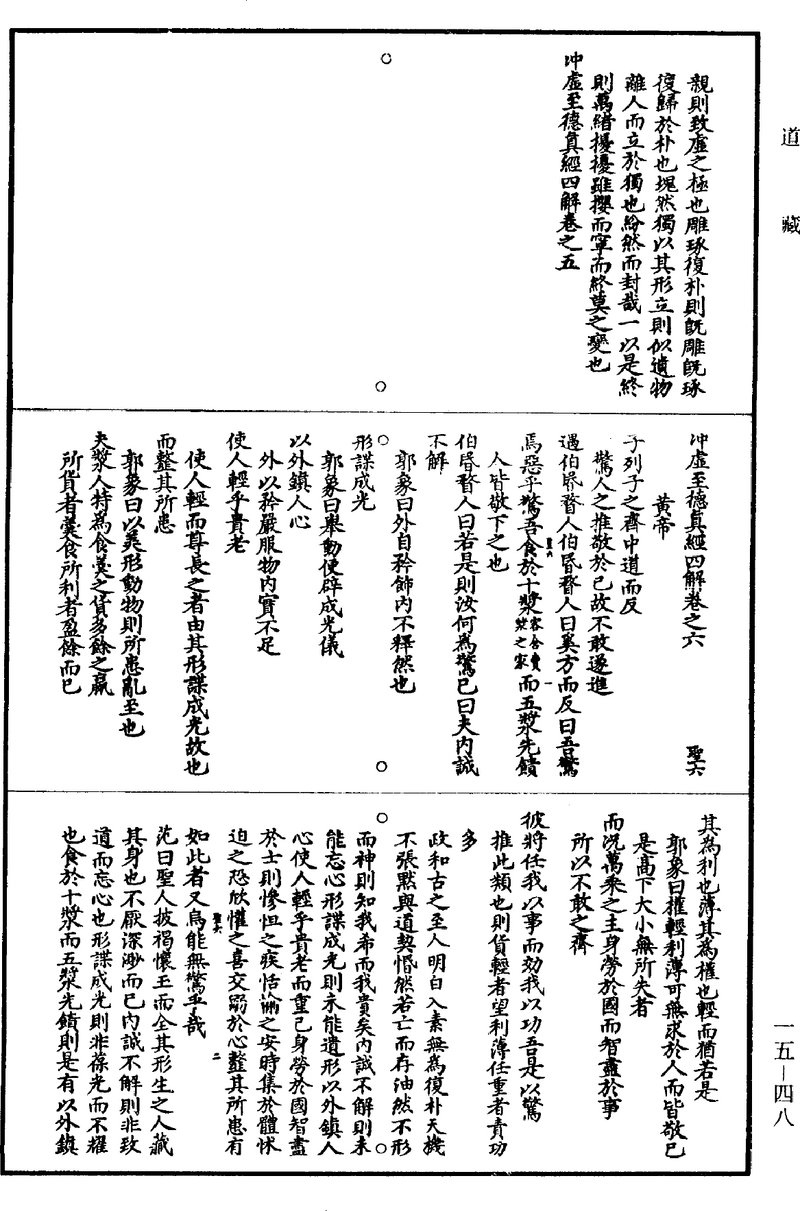 道藏
親則致虛之極也雕琢復朴則旣雕旣琢
復歸於朴也塊然獨以其形立則似遺物
離人而立於獨也紛然而封哉一以是終
則萬緒擾擾雖攖而寧而終莫之變也
冲虛至德眞經四解卷之五
冲虛至德眞經四解卷之六 聖六
黃帝
子列子之齊中道而反
驚人之推敬於己故不敢遂進
遇伯昏瞀人伯昏瞀人曰奚方而反曰吾驚
焉惡乎驚吾食於十漿客舍賣漿之家而五漿先饋
人皆敬下之也
伯昏瞀人曰若是則汝何爲驚已曰夫內誠
不解
郭象曰外自矜飾內不釋然也
形諜成光
郭象曰舉動便辟成光儀
以外鎮人心
外以矜嚴服物內實不足
使人輕乎貴老
使人輕而尊長之者由其形諜成光故也
而整其所患
郭象曰以美形動物則所患亂至也
夫漿人特爲食羹之貨多餘之贏
所貨者羹食所利者盈餘而已
其爲利也薄其爲權也輕而猶若是
郭象曰權輕利薄可無求於人而皆敬己
是高下大小無所失者
而況萬乘之主身勞於國而智盡於事
所以不敢之齊
彼將任我以事而効我以功吾是以驚
推此類也則貨輕者望利薄任重者責功
多
政和古之至人明白入素無爲復朴天機
不張默與道契惛然若亡而存油然不形
而神則知我希而我貴矣內誠不解則未
能忘心形諜成光則未能遺形以外鎮人
心使人輕乎貴老而重己身勞於國智盡
於士則慘怛之疾恬愉之安時集於體怵
迫之恐欣懽之喜交𢧵於心整其所患有
如此者又烏能無驚乎哉
范曰聖人披褐懷玉而全其形生之人藏
其身也不厭深渺而已內誠不解則非致
道而忘心也形諜成光則非葆光而不耀
也食於十漿而五漿先饋則是有以外鎮
聖六 一
聖六 二
一五—四八